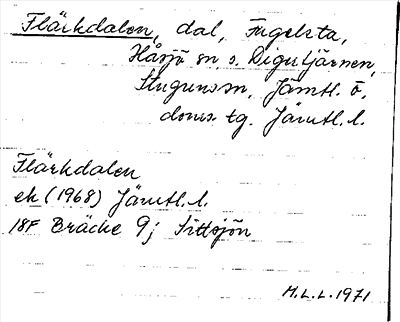 Flärkdalen, dal, Fugelsta,
Håsjö sn, s. Digertjärnen,
Stuguns sn, Jämtl. ö.
doms. tg. Jämtl. l.
Flärkdalen
ek (1968) Jämtl. l.
18F Bräcke 9j Sittsjön
M.L.L. 1971